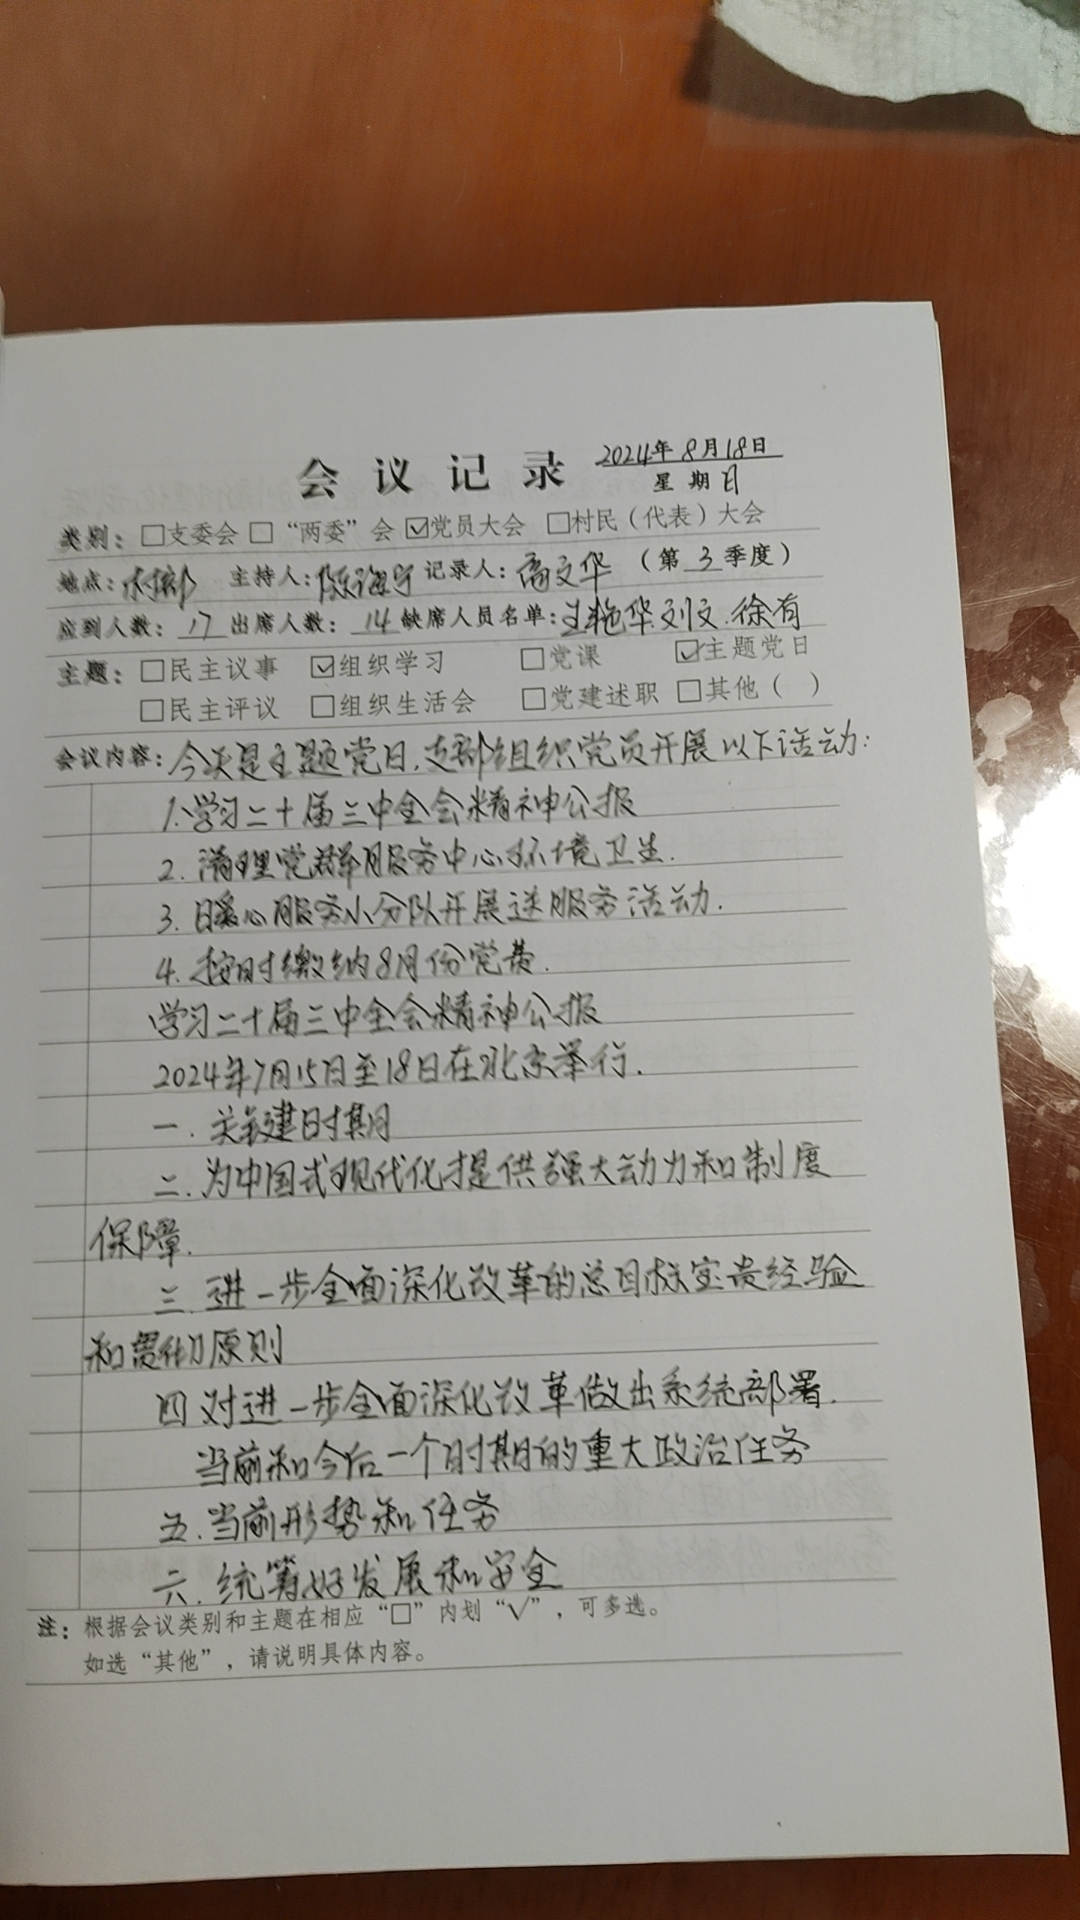 会议记录 2024年8月18日
星期日
类别：□支委会 □“两委”会 ☑党员大会 □村民（代表）大会
地点：村部 主持人：陈海宁 记录人：高文华 （第3季度）
应到人数：17 出席人数：14 缺席人员名单：王艳华.刘文.徐有
主题：□民主议事 ☑组织学习 □党课 ☑主题党日
□民主评议 □组织生活会 □党建述职 □其他（ ）
会议内容：今天是主题党日，支部组织党员开展以下活动：
1.学习二十届三中全会精神公报
2.清理党群服务中心环境卫生.
3.暖心服务小分队开展送服务活动.
4.按时缴纳8月份党费.
学习二十届三中全会精神公报
2024年7月15日至18日在北京举行.
一.关键时期
二.为中国式现代化提供强大动力和制度
保障.
三.进一步全面深化改革的总目标宝贵经验
和贯彻原则
四 对进一步全面深化改革做出系统部署.
当前和今后一个时期的重大政治任务
五.当前形势和任务
六.统筹好发展和安全
注：根据会议类别和主题在相应“□”内划“√”，可多选。
如选“其他”，请说明具体内容。